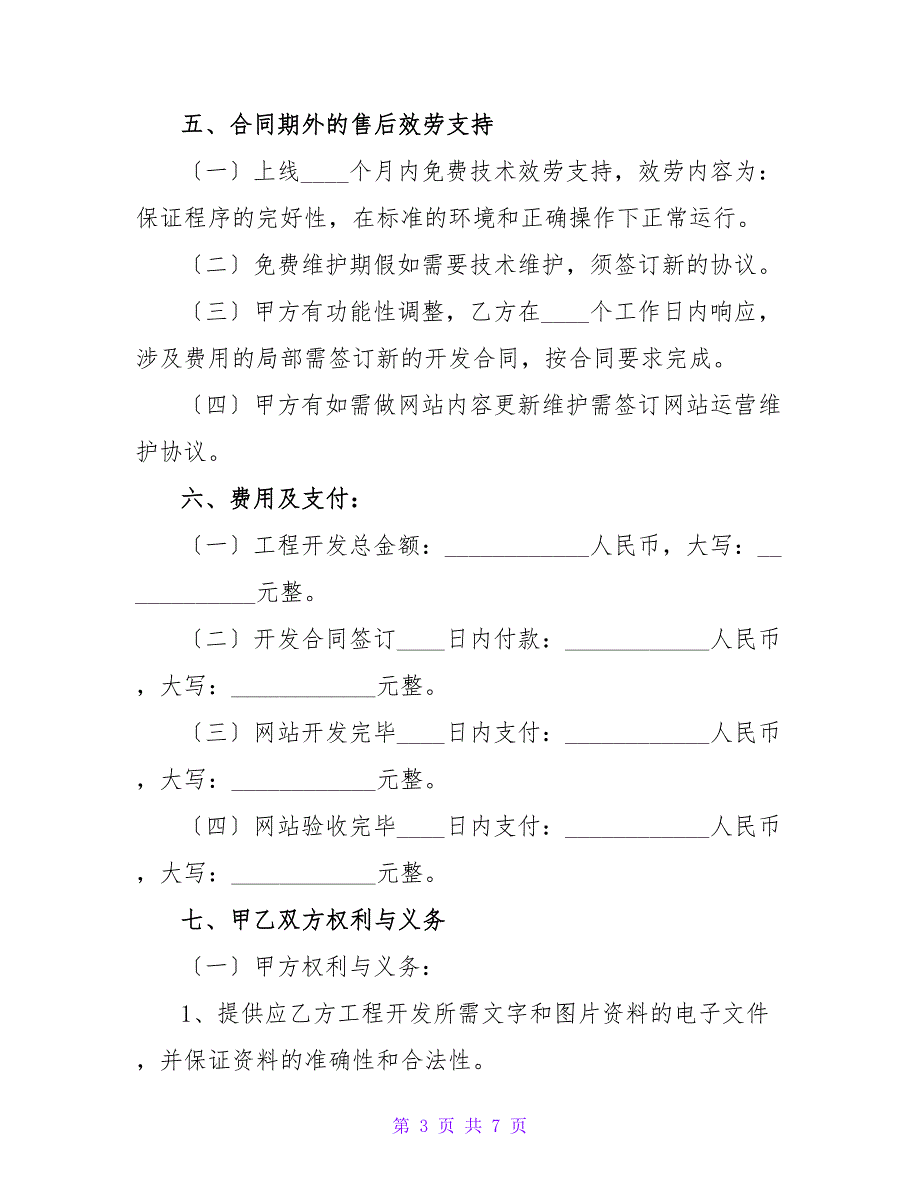 五、合同期外的售后效劳支持
〔一〕上线____个月内免费技术效劳支持，效劳内容为：
保证程序的完好性，在标准的环境和正确操作下正常运行。
〔二〕免费维护期假如需要技术维护，须签订新的协议。
〔三〕甲方有功能性调整，乙方在____个工作日内响应，
涉及费用的局部需签订新的开发合同，按合同要求完成。
〔四〕甲方有如需做网站内容更新维护需签订网站运营维
护协议。
六、费用及支付：
〔一〕工程开发总金额：____________人民币，大写：__
__________元整。
〔二〕开发合同签订____日内付款：____________人民币
，大写：____________元整。
〔三〕网站开发完毕____日内支付：____________人民币
，大写：____________元整。
〔四〕网站验收完毕____日内支付：____________人民币
，大写：____________元整。
七、甲乙双方权利与义务
〔一〕甲方权利与义务：
1、提供应乙方工程开发所需文字和图片资料的电子文件
，并保证资料的准确性和合法性。
第 3 页 共 7 页